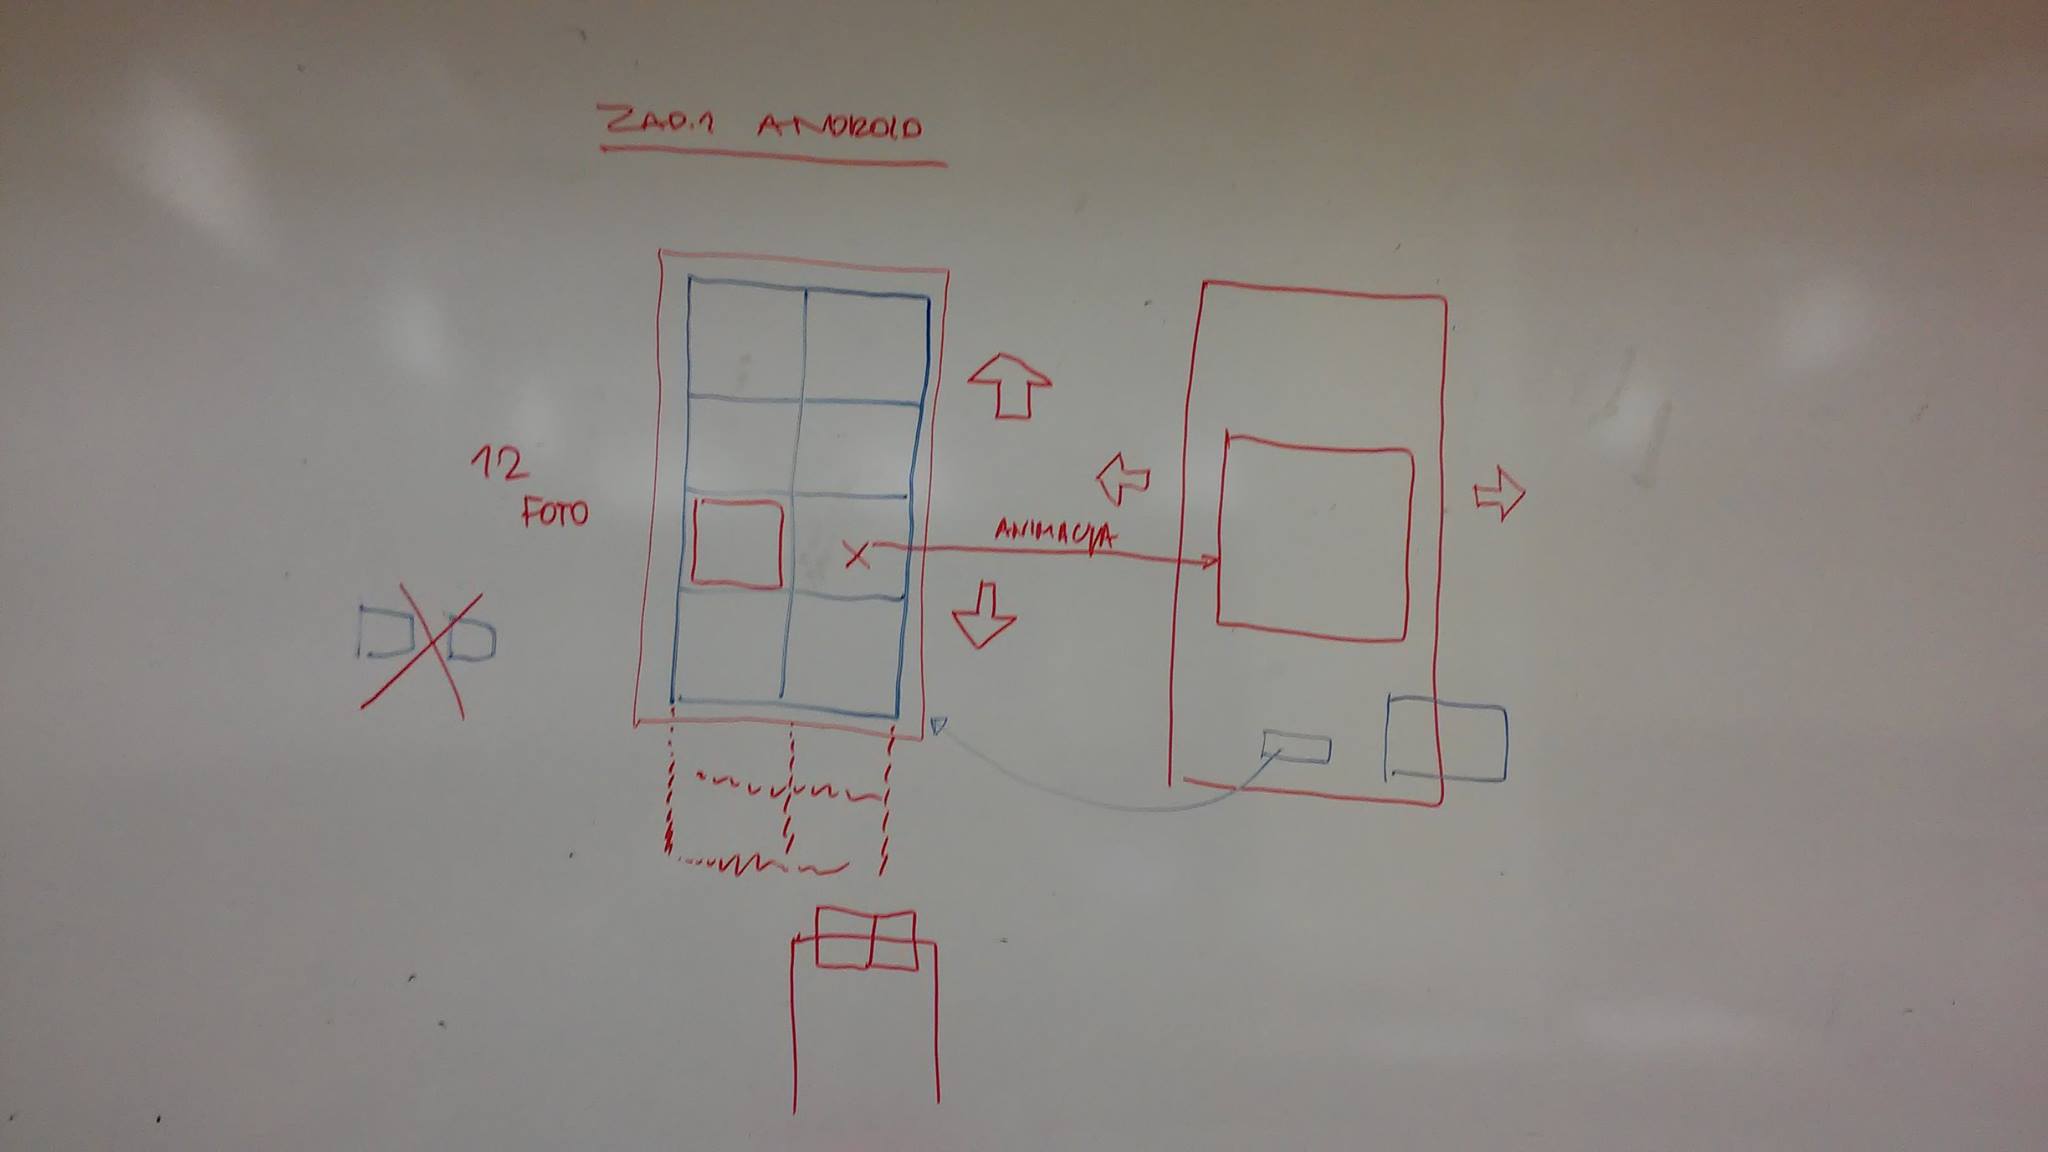 ZAD.1 ANDROID
12
FOTO
ANIMACJA